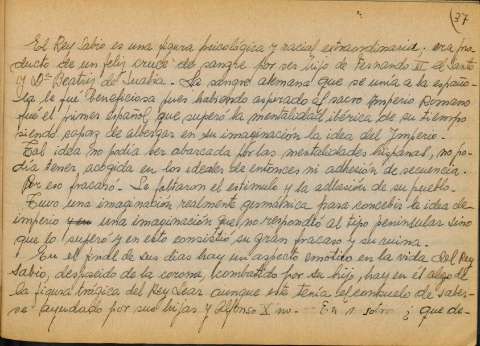 37
El Rey Sabio es una figura psicológica y racial extraordinaria; era pro-
ducto de un feliz cruce de sangre por ser hijo de Fernando III el Santo
y Dª Beatriz de Suabia. La sangre alemana que se unía a la españo-
la le fué beneficiosa pues habiendo aspirado al sacro Imperio Romano
fué el primer español que superó la mentalidad ibérica de su tiempo
siendo capaz de albergar en su imaginación la idea del Imperio.
Tal idea no podía ser abarcada por las mentalidades hispanas, no po-
día tener, acogida en los ideales de entonces ni adhesión de secuencia.
Por eso fracasó. Le faltaron el estímulo y la adhesión de su pueblo.
Tuvo una imaginación realmente germánica para concebir la idea de
imperio una imaginación que no respondió al tipo peninsular sino
que lo superó y en esto consistió su gran fracaso y su ruina.
En el final de sus días hay un aspecto emotivo en la vida del Rey
Sabio, despojado de la corona, combatido por su hijo, hay en el algo de
la figura trágica del Rey Lear aunque este tenía el consuelo de saber-
se ayudado por sus hijas y Alfonso X no. — En ¿ que de-